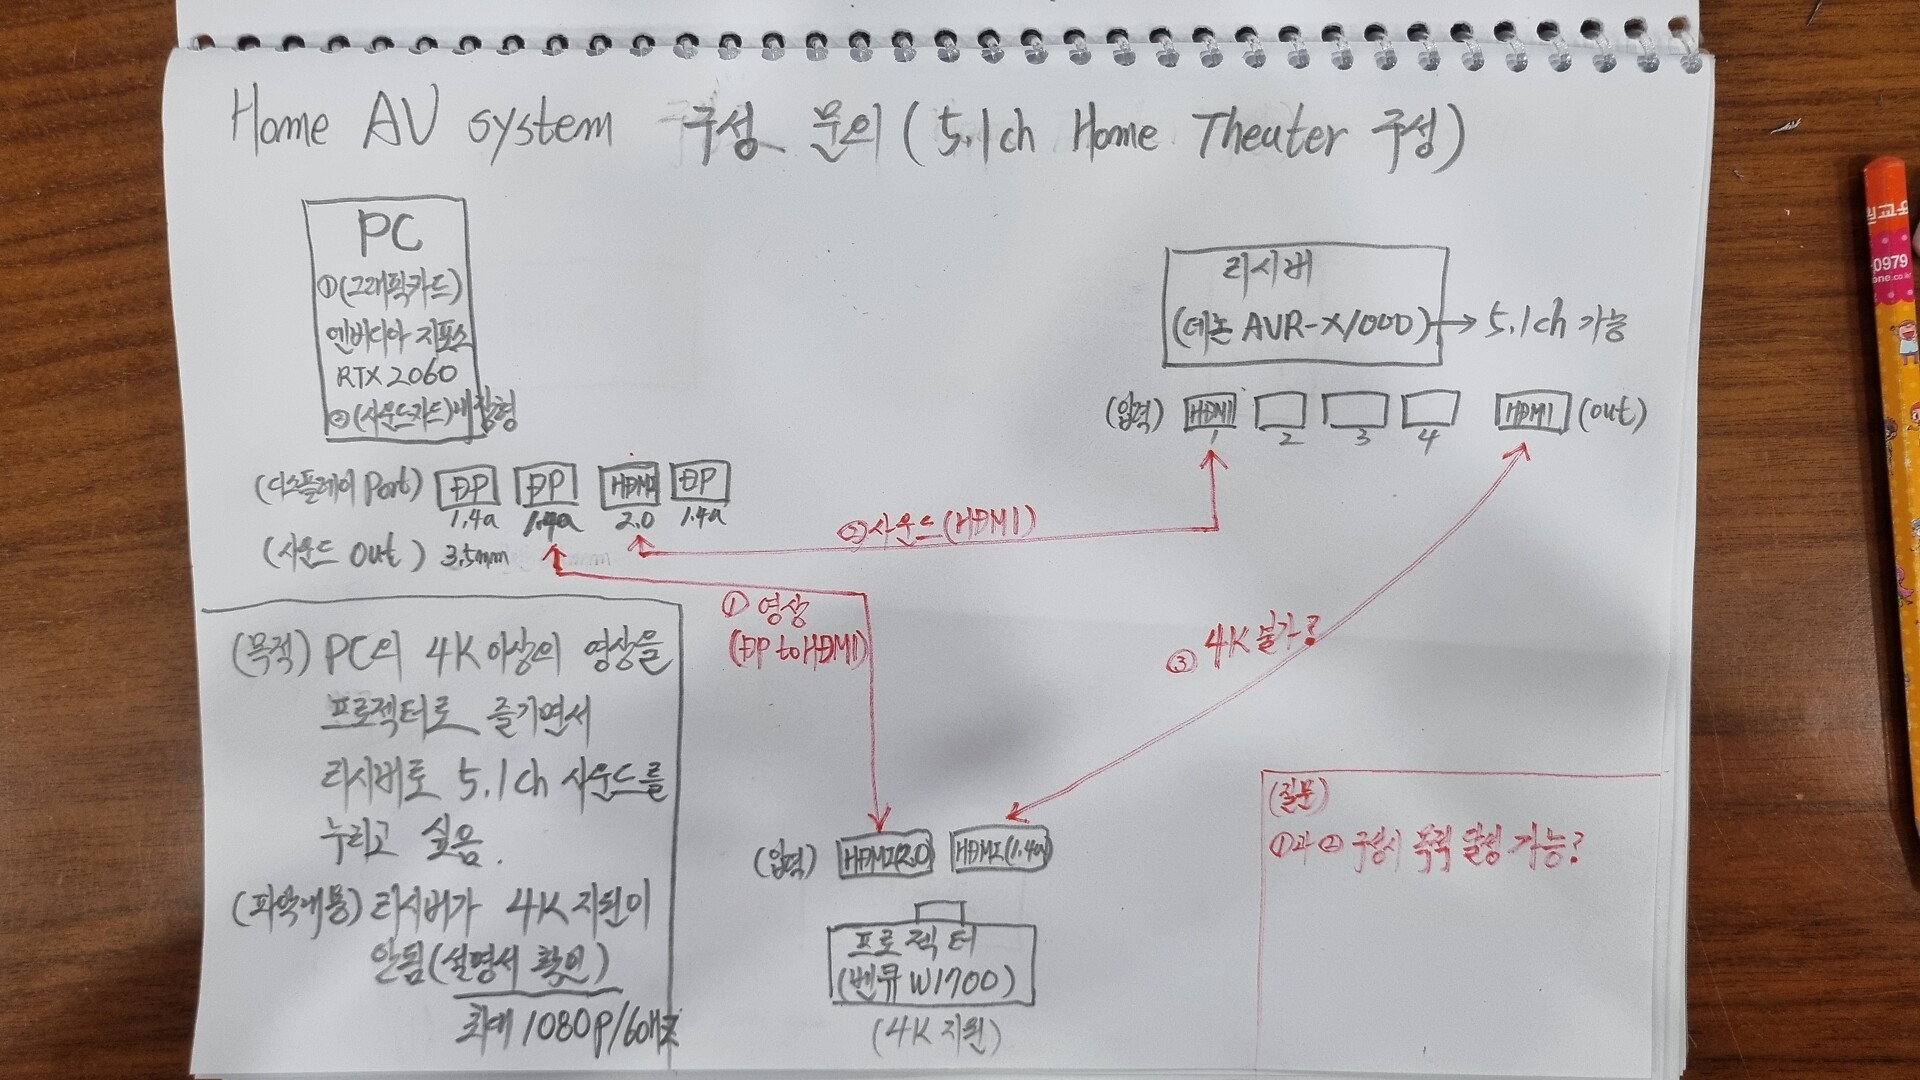 Home AV system 구성 문의 (5.1ch Home Theater 구성)
PC
①(그래픽카드)
엔비디아 지포스
RTX 2060
②(사운드카드)내장형
리시버
(데논 AVR-X1000) → 5.1ch 가능
(입력) HDMI HDMI (out)
1 2 3 4
(디스플레이 Port) DP DP HDMI DP
1.4a 1.4a 2.0 1.4a
(사운드 out) 3.5mm
②사운드(HDMI)
① 영상
(DP to HDMI)
③ 4K 불가?
(목적) PC의 4K이상의 영상을
프로젝터로 즐기면서
리시버로 5.1ch 사운드를
누리고 싶음.
(파악내용) 리시버가 4K 지원이
안됨(설명서 확인)
최대 1080P/60헤르츠
(입력) HDMI(2.0) HDMI(1.4a)
프로젝터
(벤큐 W1700)
(4K 지원)
(질문)
①과 ② 구성시 목적 달성 가능?
원교육
-0979
one.co.kr